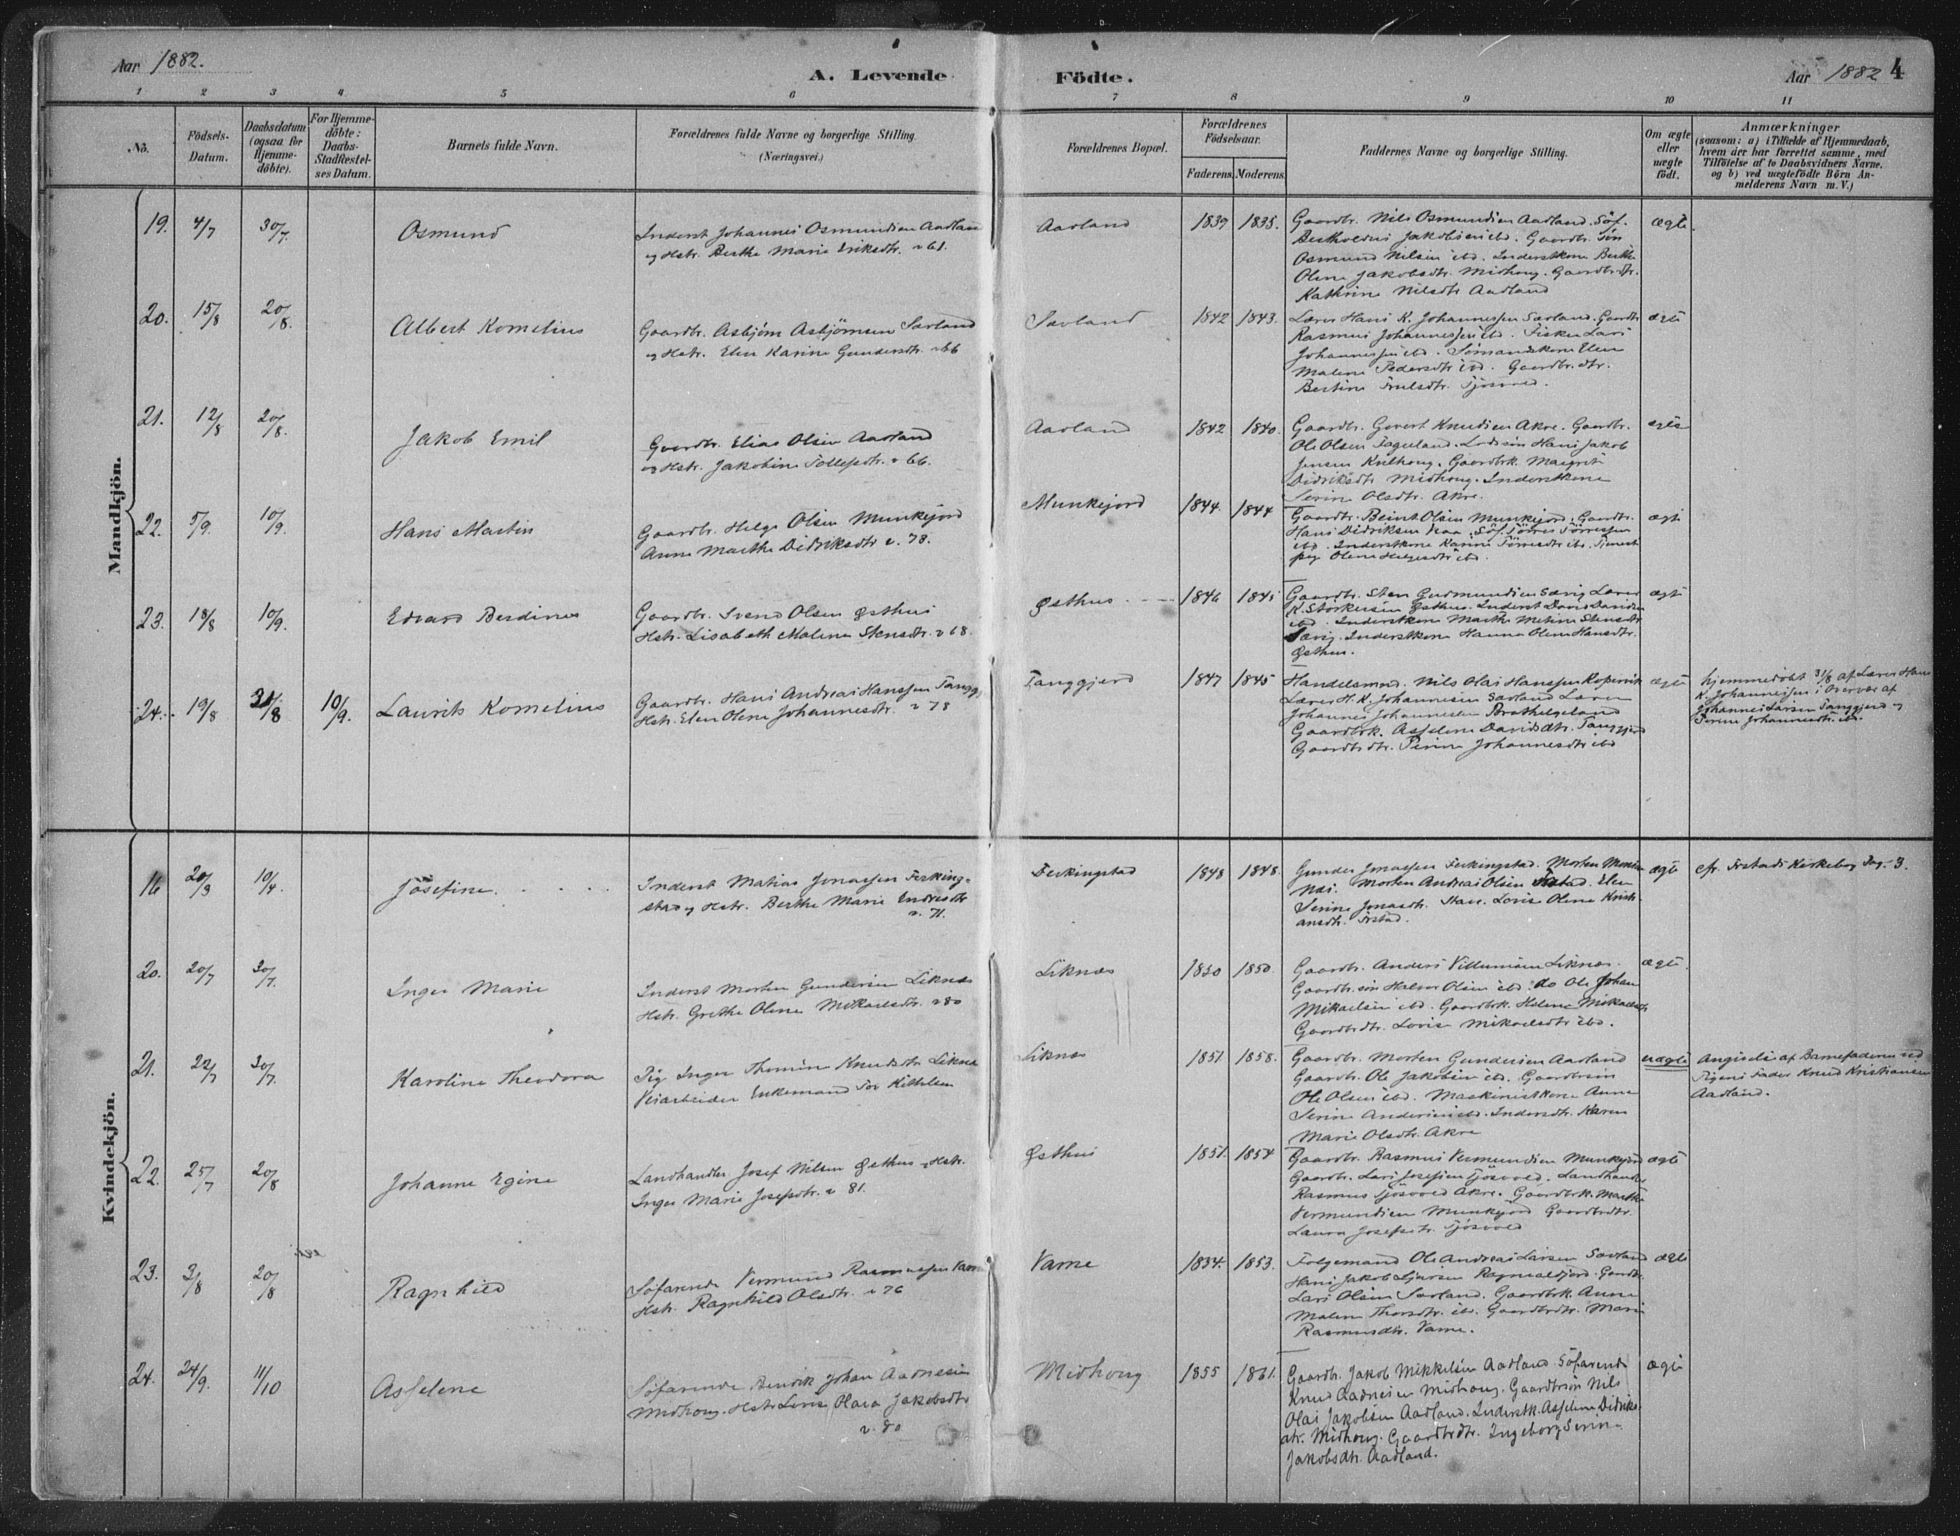 Aar 1882.
A. Levende Födte.
Aar 1882 4
1 2 3 4 5 6 7 8 9 10 11
No.
Födsels-
Datum.
Daabsdatum
(ogsaa for
Hjemme-
döbte).
For Hjemme-
döbte:
Daabs-
Stadfæstel-
ses Datum.
Barnets fulde Navn.
Forældrenes fulde Navne og borgerlige Stilling.
(Næringsvei.)
Forældrenes Bopæl.
Forældrenes
Födselsaar.
Faderens. Moderens.
Faddernes Navne og borgerlige Stilling.
Om ægte
eller
uægte
födt.
Anmærkninger
(saasom: a) i Tilfælde af Hjemmedaab,
hvem der har forrettet samme, med
Tilföielse af to Daabsvidners Navne.
og b) ved uægtefödte Börn An-
melderens Navn m. V.)
Mandkjön.
19. 4/7 30/7. Osmund
Inderst Johannes Osmundsen Aadland
og Hstr. Berthe Marie Eriksdtr. v 61.
Aadland 1839 1835.
Gaardbr. Nils Osmundsen Aadland. Söf.
Bertholdus Jakobsen ibd. Gaardbr. Sön
Osmund Nilsen ibd. Inderstkone Berthe
Olene Jakobsdtr. Midhoug. Gaardbr.dtr.
Kathrine Nilsdtr Aadland
ægte.
20. 15/8 20/8. Albert Kornelius
Gaardbr. Asbjörn Asbjörnsen Sævland
og Hstr. Elen Karine Gundersdtr. v 66
Sævland 1842 1843.
Lærer Hans K. Johannessen Sævland. Gaardbr
Rasmus Johannessen ibd. Fisker Lars
Johannessen ibd. Sömandskone Elen
Malene Pedersdtr ibd. Gaardbr. dtr.
Bertine Trulsdtr. Tjösvold.
ægte
21. 12/8 20/8. Jakob Emil
Gaardbr. Elias Olsen Aadland
og Hstr. Jakobine Tollefsdtr. v 66.
Aadland 1842 1840.
Gaardbr. Govert Knudsen Akre. Gaardbr.
Ole Olsen Fageland. Lodssön Hans Jakob
Jensen Kvilhoug. Gaardbrk. Margrete
Didriksdtr Midhoug. Inderstkone
Serine Olsdtr. Akre.
ægte
22. 5/9. 10/9. Hans Martin
Gaardbr. Helge Olsen Munkejord
Anne Marthe Didriksdtr v. 78.
Munkejord 1844. 1844
Gaardbr. Beint Olsen Munkejord. Gaardbr.
Hans Didriksen Kaa. Söf. Törres Törressen
ibd. Inderstkone Karine Törresdtr ibd. Tjenest
pige Olene Helgesdtr ibd.
ægte
23. 18/8 10/9. Edvard Berdinus
Gaardbr. Svend Olsen Østhus
Hstr. Lisabeth Malene Stensdtr. v 68.
Østhus 1846 1845
Gaardbr. Sten Gudmundsen Særig Lærer
K. Storkersen Østhus. Inderst David Davidsen
ibd. Inderstkone Marthe Metine Stensdtr
Særig. Inderstkone Hanna Olene Hansdtr.
Østhus.
ægte
24. 19/8 31/8 10/9. Laurits Kornelius
Gaardbr. Hans Andreas Hanssen Tanggj.
Hstr. Elen Olene Johannesdtr. v 78
Tanggjerd 1847 1845
Handelsmnd. Nils Olai Hanssen Kopervik
Lærer H. K. Johannessen Sævland Lærer
Johannes Johannessen Brathelgeland
Gaardbrk. Asselene Davidsdtr. Tanggjerd
Gaardbrdtr. Serine Johannesdtr ibd
ægte
hjemmedöbt 31/8 af Lærer Hans
K. Johannessen i Overvær af
Johannes Larsen Tanggjerd og
Serine Johannesdtr. ibd.
Kvindekjön.
16 20/3 10/4. Josefine.
Inderst Matias Jonassen Ferking-
stad og Hstr. Berthe Marie Endresdtr
v. 71.
Ferkingstad 1848 1848.
Gunder Jonassen Ferkingstad. Morten
Næs. Morten Andreas Olsen. Elen
Serine Jonasdtr. Lovise Olene Kristi-
ansdtr.
ægte
cfr. Kirkebog Pag. 3.
20. 20/7 30/7. Inger Marie
Inderst Morten Gundersen Liknæs
Hstr. Grethe Olene Mikaelsdtr. v 80
Liknæs 1850 1850.
Gaardbr. Anders Villumsen Liknæs.
Gaardbr.sön Halvor Olsen ibd. do Ole Johan
Mikaelsen ibd. Gaardbrk. Helene Mikaelsdtr
Gaardbrdtr. Lovise Mikaelsdtr ibd.
ægte.
21. 22/7 30/7. Karoline Theodora
Pig. Inger Thomine Knudsdtr Liknæs
Veiarbeider Enkemand Tor Kittelsen
Liknæs 1851 1858.
Gaardbr. Morten Gundersen Aadland
Gaardbr. Ole Jakobsen ibd. Gaardbrsön
Ole Olsen ibd. Maskinistkone Anne
Serine Andersen ibd. Inderstdtr. Karen
Marie Olsdtr. Akre
uægte
Angivelse af Barnefaderen ved
Pigens Fader Knud Kristiansen
Aadland.
22. 25/7 20/8 Johanne Egine
Landhandler Josef Nilsen Østhus og Hstr.
Inger Marie Josefsdtr. v 81.
Østhus 1851. 1854
Gaardbr. Rasmus Vermundsen Munkejord
Gaardbr. Lars Josefsen Tjösvold. Landhandler
Rasmus Tjösvold Akre. Gaardbrk. Marthe
Vermundsen Munkejord Gaardbrdtr.
Laura Josefsdtr. Tjösvold
ægte
23. 3/8 20/8 Ragnhild
Söfarende Vermund Rasmussen Varne
Hstr. Ragnhild Olsdtr. v 76
Varne 1834. 1853.
Folgemand Ole Andreas Larsen Sævland
Hans Jakob Sjursen Ragnvaldjord. Gaardbr.
Lars Olsen Sævland. Gaardbrk. Anne
Malene Thorsdtr. ibd. Gaardbrdtr. Marie
Rasmusdtr. Varne.
ægte
24. 24/9. 11/10 Asselene
Söfarende Bendik Johan Aadnesen
Midhoug. Hstr. Lovise Olava Jakobsdtr
v. 80
Midhoug 1855 1861.
Gaardbr. Jakob Mikkelsen Aadland Söfarende
Knud Aadnesen Midhoug. Gaardbrsön Nils
Olai Jakobsen Aadland. Inderstk. Asselene Didriks-
dtr. Midhoug. Gaardbrdtr. Ingeborg Serine
Jakobsdtr. Aadland.
ægte